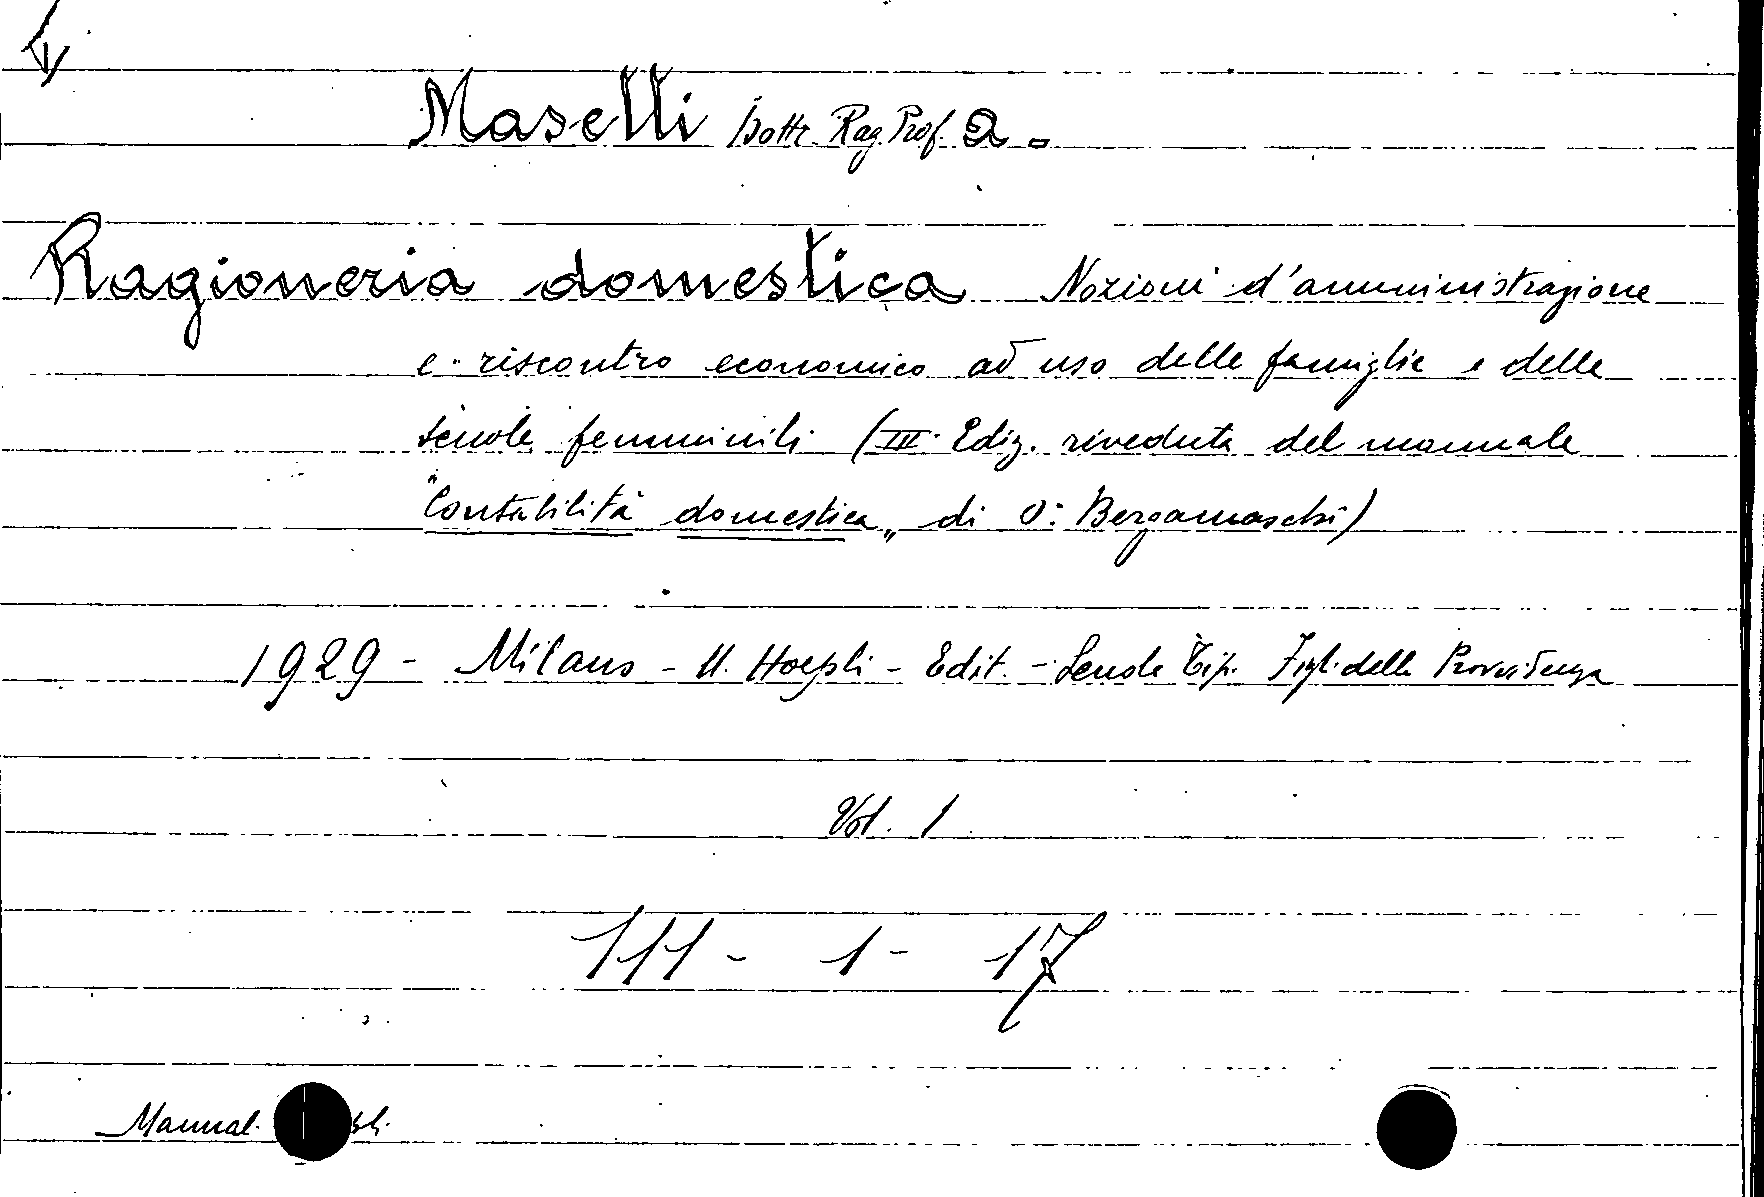 Maselli Dott. Rag. Prof. a.
Ragioneria domestica Nozioni d'amministrazione
e riscontro economico ad uso delle famiglie e delle
scuole femminili (III Ediz. riveduta del manuale
"Contabilità domestica„ di O. Bergamaschi)
1929 - Milano - U. Hoepli - Edit. - Scuole Tip. Figli della Provvidenza
Vol. 1
111 - 1 - 17
Manual.